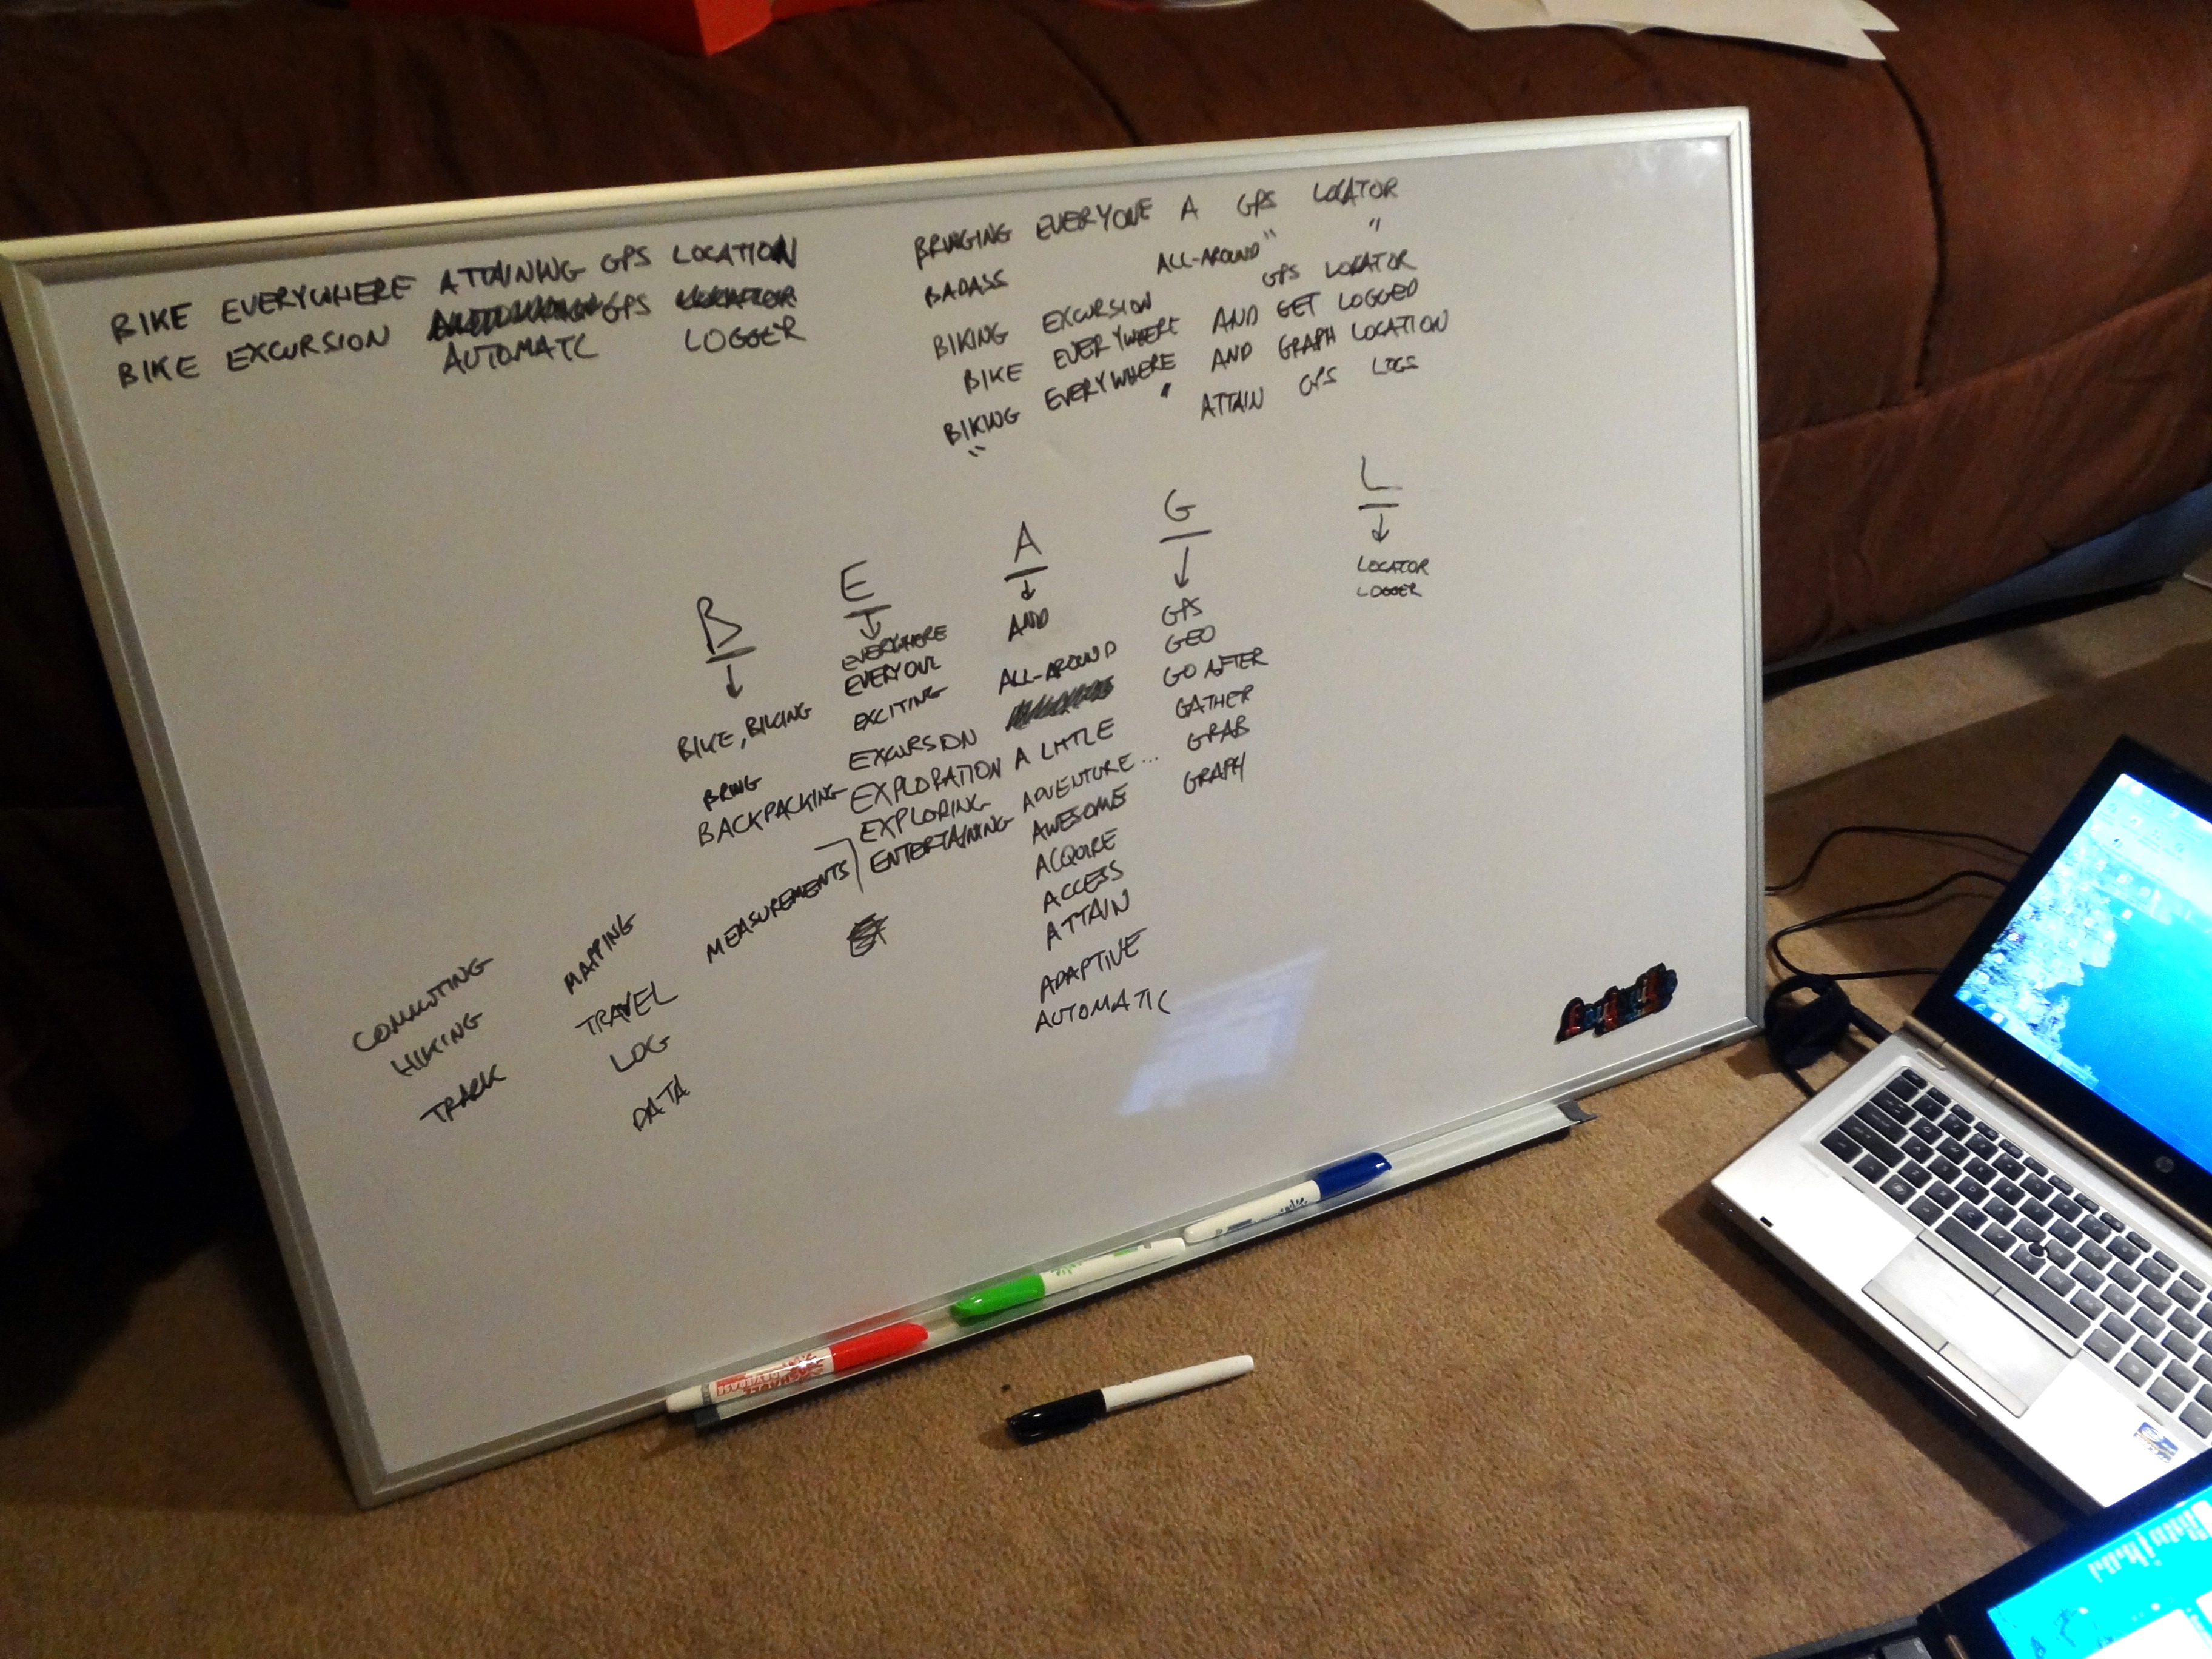 BIKE EVERYWHERE ATTAINING GPS LOCATION
BIKE EXCURSION GPS LOCATOR
AUTOMATC LOGGER
BRINGING EVERYONE A GPS LOCATOR
BADASS ALL-AROUND " "
BIKING EXCURSION GPS LOCATOR
BIKE EVERYWHERE AND GET LOGGED
BIKING EVERYWHERE AND GRAPH LOCATION
" " ATTAIN GPS LOGS
B
BIKE, BIKING
BRING
BACKPACKING
E
EVERYWHERE
EVERYONE
EXCITING
EXCURSION
EXPLORATION
EXPLORING
ENTERTAINING
A
AND
ALL-AROUND
A LITTLE
ADVENTURE...
AWESOME
ACQUIRE
ACCESS
ATTAIN
ADAPTIVE
AUTOMATIC
G
GPS
GEO
GO AFTER
GATHER
GRAB
GRAPH
L
LOCATOR
LOGGER
COMMUTING
HIKING
TRACK
MAPPING
TRAVEL
LOG
DATA
MEASUREMENTS
hp